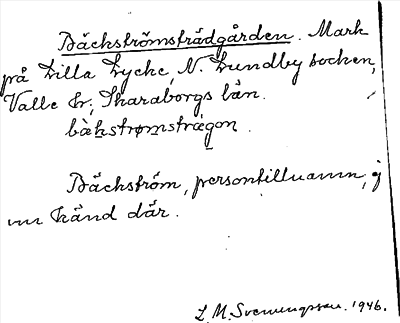 Bäckströmsträdgården. Mark
på Lilla Lycke, N. Lundby socken,
Valle hd; Skaraborgs län.
bàkstrømsträgon
Bäckström, persontillnamn, ej
nu känd där.
L. M. Svenungsson. 1946.